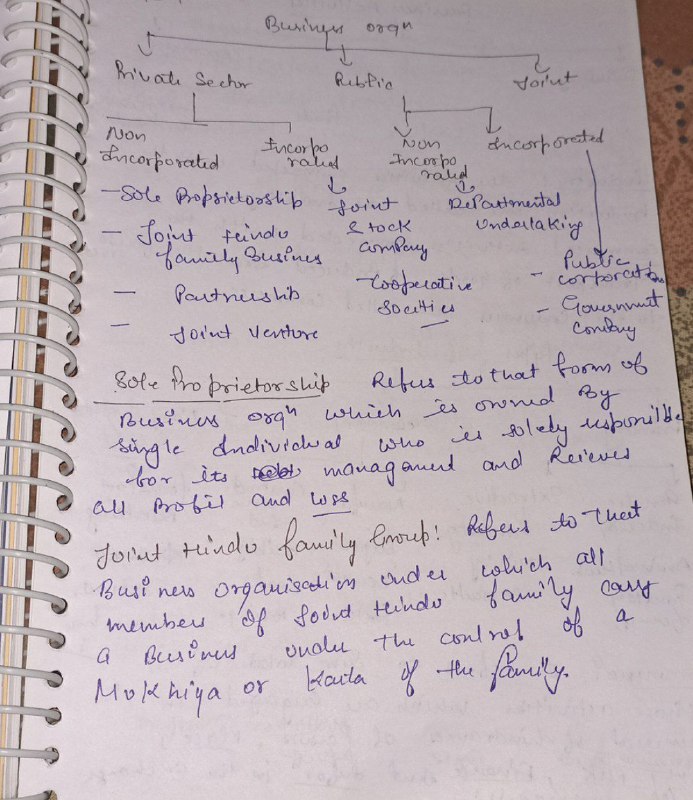 Business orgn
Private Sector Public Joint
Non Incorporated
Incorporated
Non Incorporated
Incorporated
- Sole Proprietorship
- Joint Hindu
family Business
- Partnership
- Joint Venture
Joint
Stock
Company
Cooperative
Socities
Departmental
Undertaking
- Public
corporation
- Government
Company
Sole Proprietorship Refers to that form of
Business orgn which is owned By
single Individual who is solely responsible
for its management and Recieves
all Profit and loss
Joint Hindu family Group: Refers to that
Business organisation under which all
members of Joint Hindu family carry
a Business under the control of a
Mukhiya or Karta of the family.